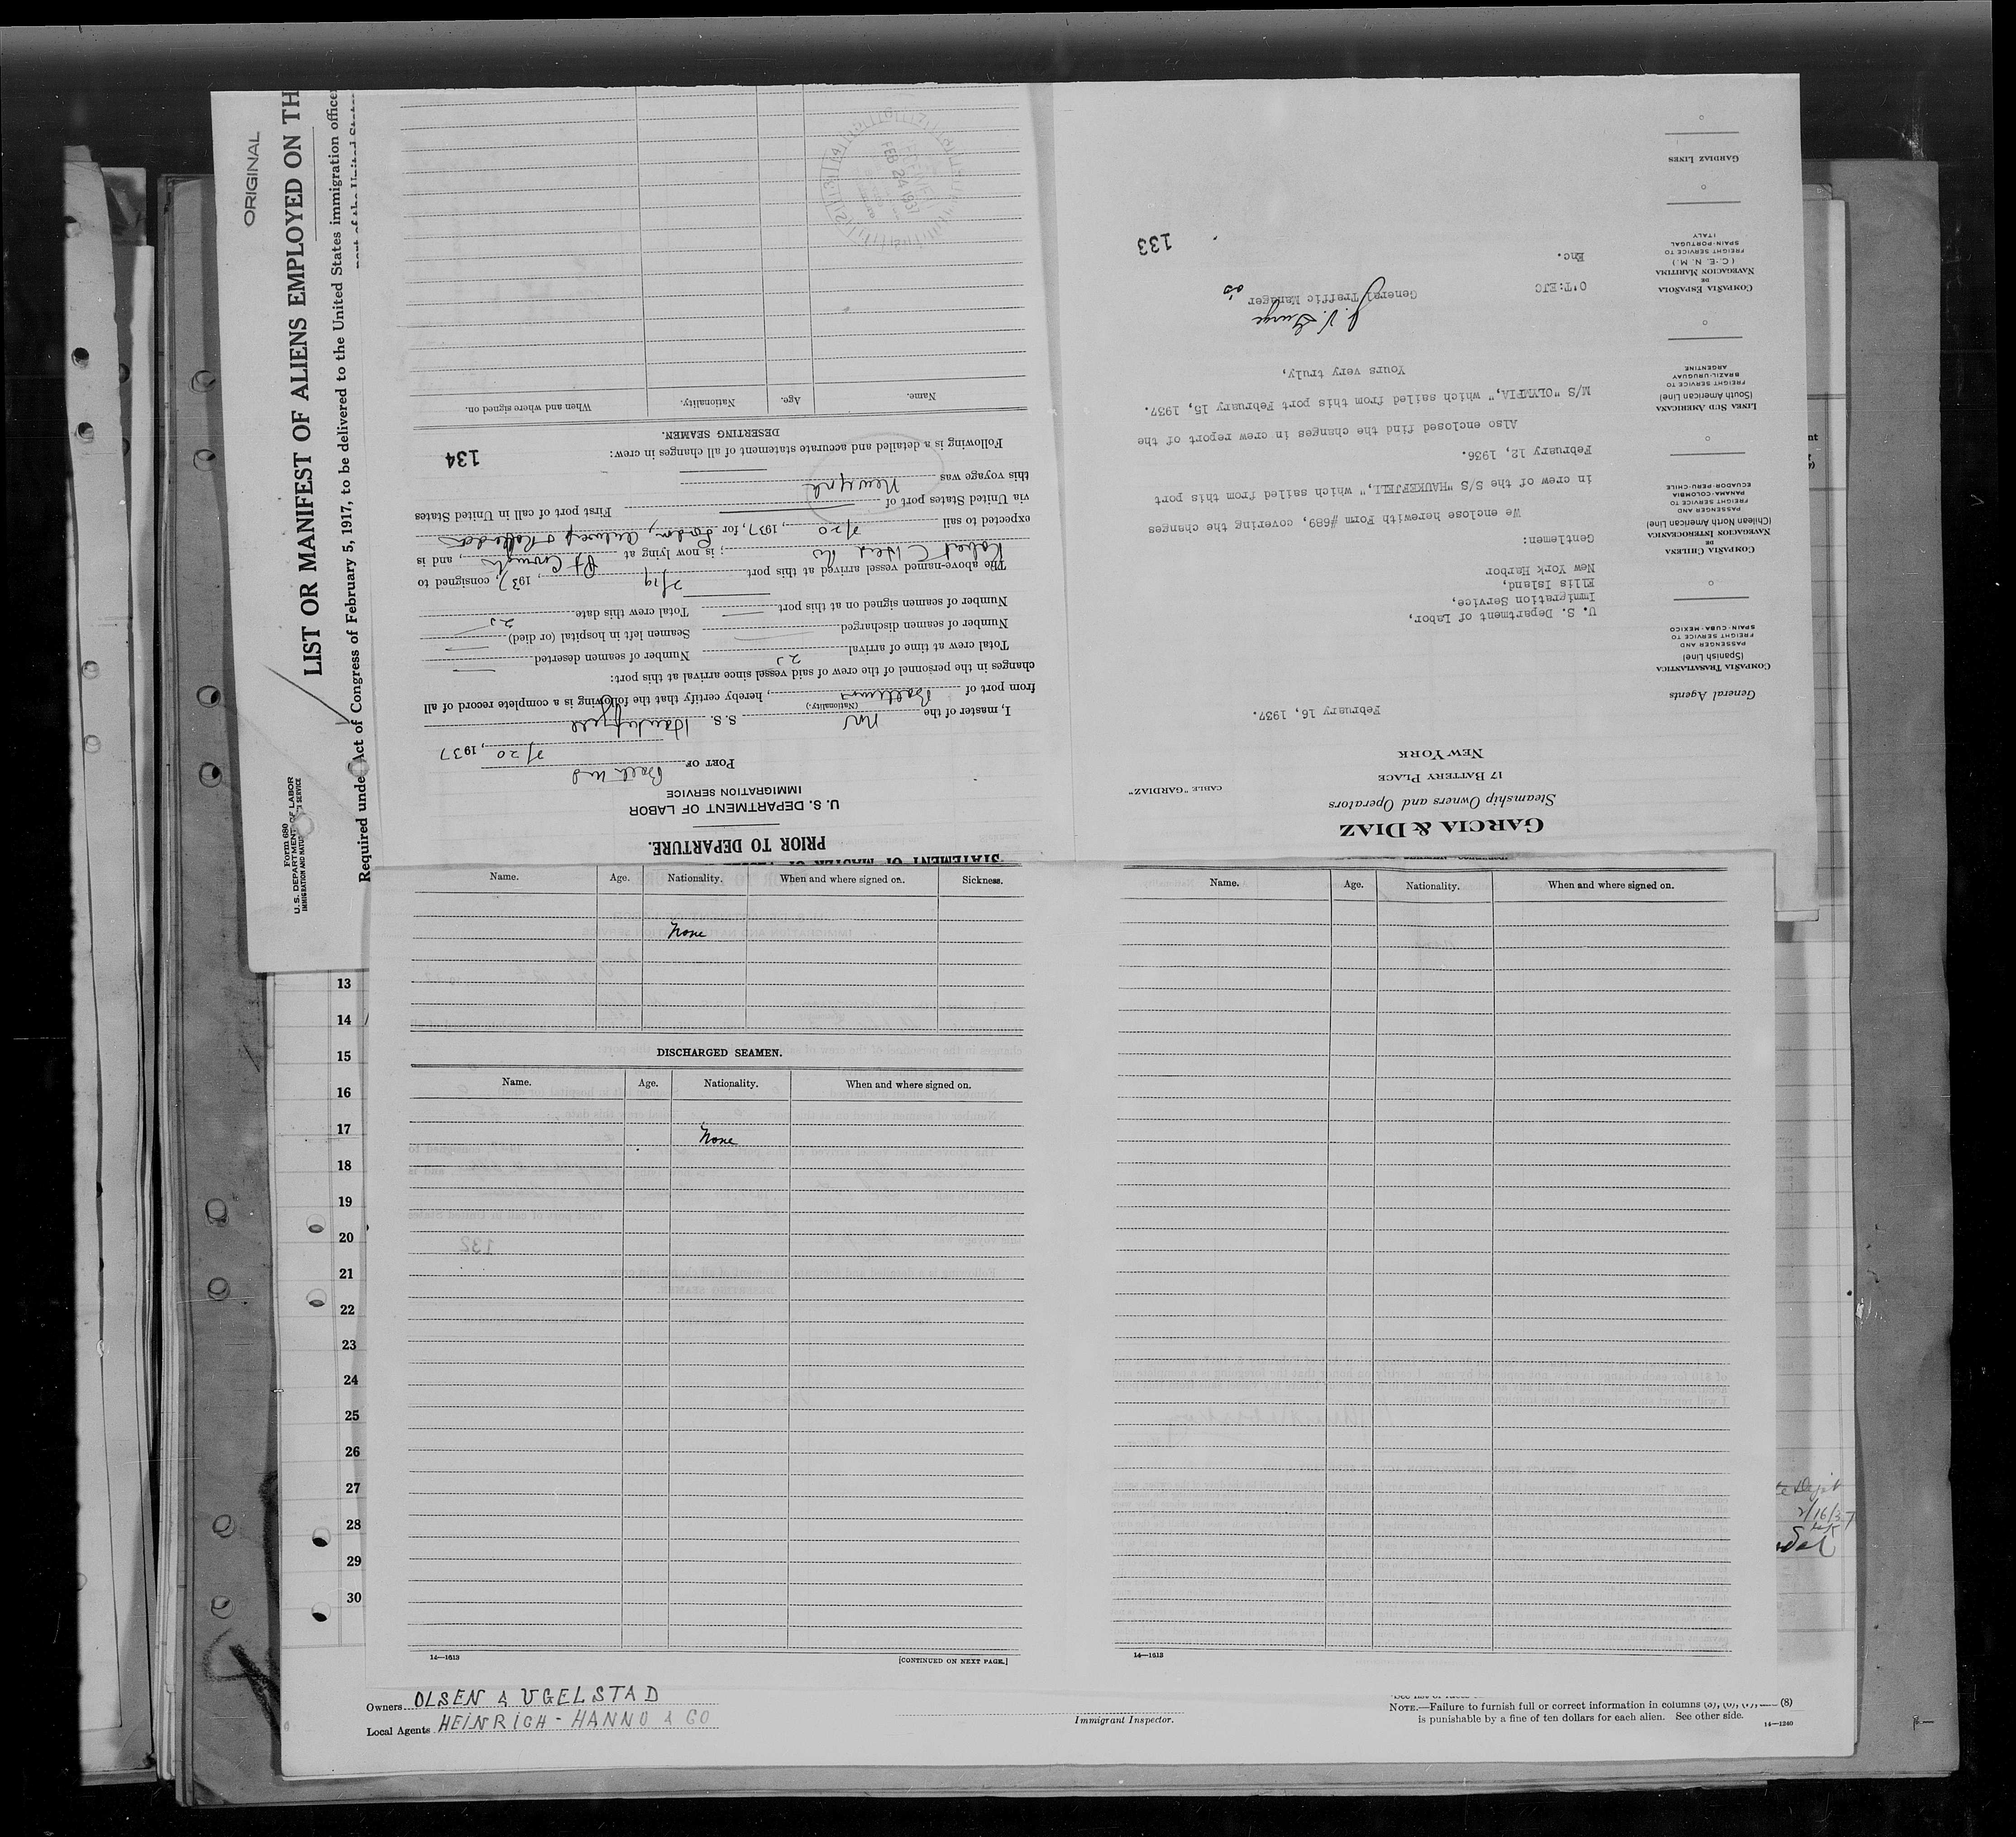 ORIGINAL
Form 680
U. S. DEPARTMENT OF LABOR
LIST OR MANIFEST OF ALIENS EMPLOYED ON TH
Required under Act of Congress of February 5, 1917, to be delivered to the United States immigration office
PRIOR TO DEPARTURE.
U. S. DEPARTMENT OF LABOR
IMMIGRATION SERVICE
PORT OF Balt Md
2/20, 1937
I, master of the Nor S. S.
(Nationality.)
from port of hereby certify that the following is a complete record of all
changes in the personnel of the crew of said vessel since arrival at this port:
Total crew at time of arrival Number of seamen deserted
Number of seamen discharged Seamen left in hospital (or died)
Number of seamen signed on at this port Total crew this date
The above-named vessel arrived at this port 2/19, 1937, consigned to
Robert C Herd ; is now lying at Pt Covington, and is
expected to sail 2/20, 1937, for London, Antwerp & Rotterdam
via United States port of First port of call in United States
this voyage was New York
Following is a detailed and accurate statement of all changes in crew:
134
DESERTING SEAMEN.
Name. Age. Nationality. When and where signed on.
FEB 24 1937
GARCIA & DIAZ
Steamship Owners and Operators
17 BATTERY PLACE
NEW YORK
CABLE "GARDIAZ"
February 16, 1937.
General Agents
COMPAÑIA TRASATLANTICA
(Spanish Line)
PASSENGER AND
FREIGHT SERVICE TO
SPAIN-CUBA-MEXICO
COMPAÑIA CHILENA
DE
NAVEGACION INTEROCEANICA
(Chilean North American Line)
PASSENGER AND
FREIGHT SERVICE TO
PANAMA-COLOMBIA
ECUADOR-PERU-CHILE
LINEA SUD AMERICANA
(South American Line)
FREIGHT SERVICE TO
BRAZIL-URUGUAY
ARGENTINE
COMPAÑIA ESPAÑOLA
DE
NAVEGACION MARITIMA
(C. E. N. M.)
FREIGHT SERVICE TO
SPAIN-PORTUGAL
ITALY
GARDIAZ LINES
U. S. Department of Labor,
Immigration Service,
Ellis Island,
New York Harbor
Gentlemen:
We enclose herewith Form #689, covering the changes
in crew of the S/S "HAUKEFJELL," which sailed from this port
February 12, 1936.
Also enclosed find the changes in crew report of the
M/S "OLYMPIA," which sailed from this port February 15, 1937.
Yours very truly,
General Traffic Manager
O'T:EJC
Enc.
133
Name. Age. Nationality. When and where signed on. Sickness.
None
DISCHARGED SEAMEN.
Name. Age. Nationality. When and where signed on.
None
14—1613
[CONTINUED ON NEXT PAGE.]
Name. Age. Nationality. When and where signed on.
14—1613
13
14
15
16
17
18
19
20
21
22
23
24
25
26
27
28
29
30
2/16/37
Owners OLSEN & UGELSTAD
Local Agents HEINRICH - HANNO & CO
Immigrant Inspector.
NOTE.—Failure to furnish full or correct information in columns (8)
is punishable by a fine of ten dollars for each alien. See other side.
14—1240